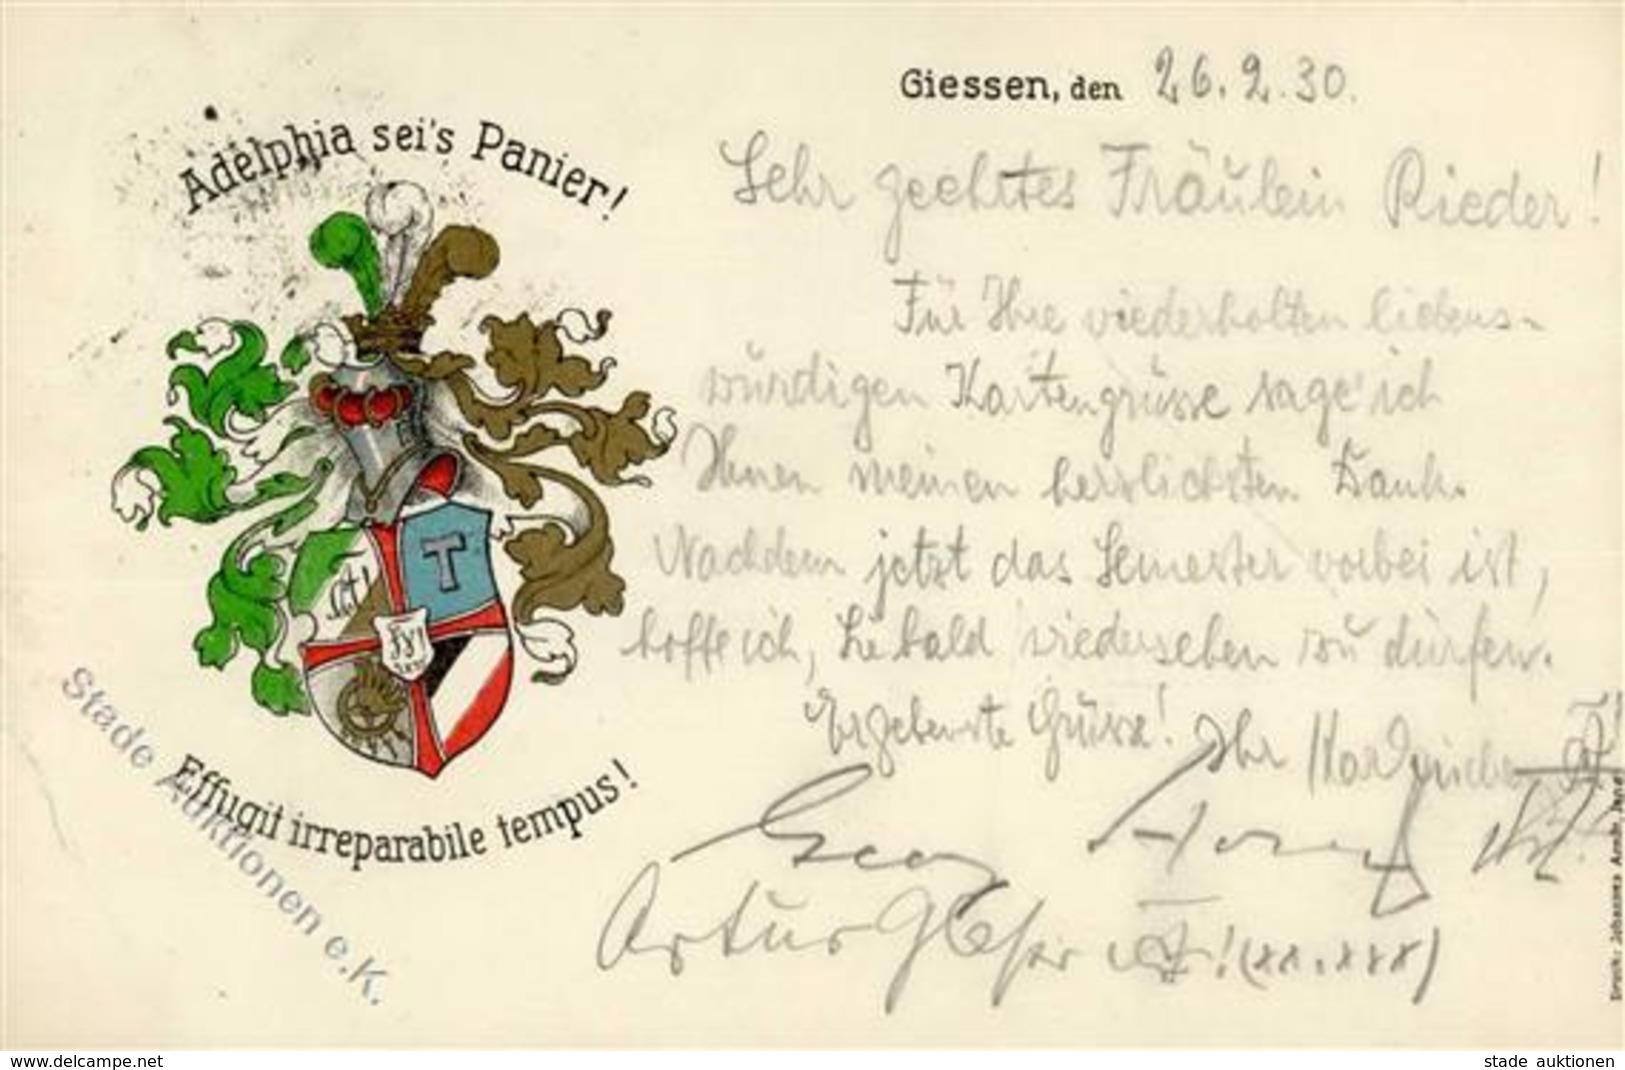 Giessen, den 26. 2. 30.
Adelphia sei's Panier!
Sehr geehrtes Fräulein Rieder!
Für Ihre wiederholten liebens-
würdigen Kartengrüsse sage ich
Ihnen meinen herzlichsten Dank.
Nachdem jetzt das Semester vorbei ist,
hoffe ich, Sie bald wiedersehen zu dürfen.
Ergebenste Grüsse! Ihr
T
Effugit irreparabile tempus!
Georg
Artur ! (xx, xxx)
Druck: Johannes Arndt, Jena
Stade Auktionen e.K.
www.delcampe.net
stade auktionen